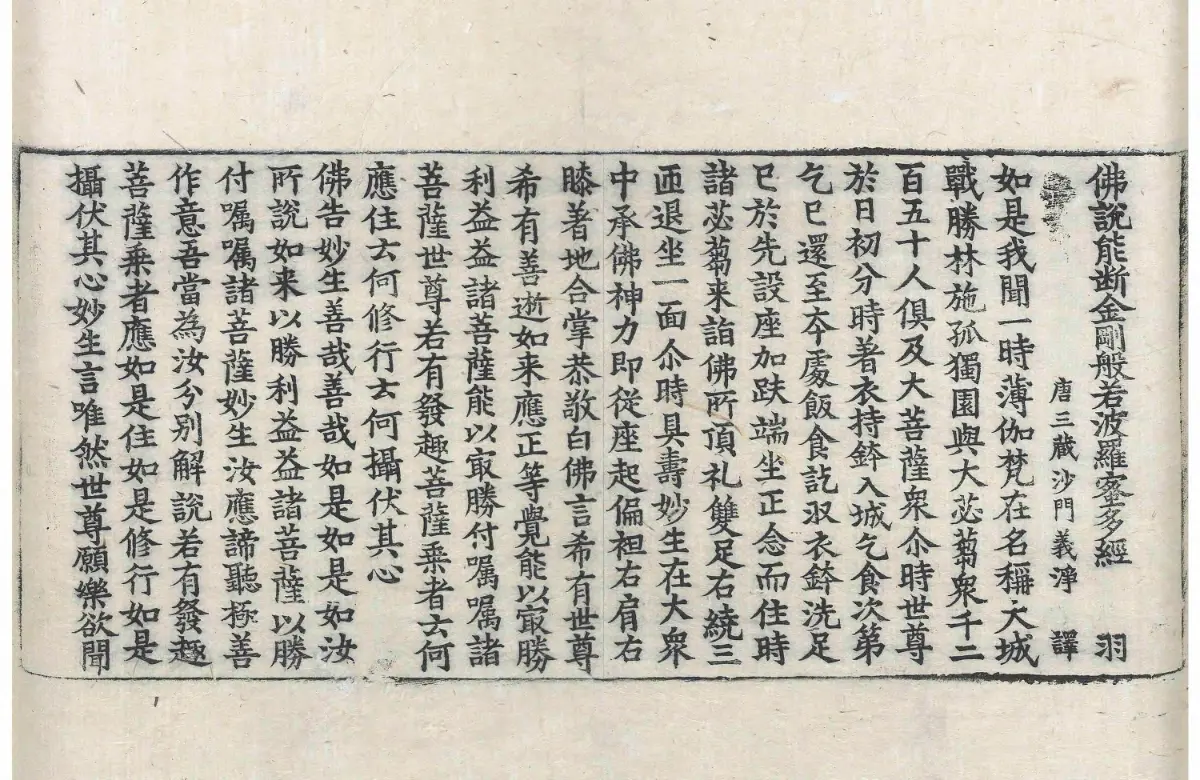 佛說能斷金剛般若波羅蜜多經 羽
唐三蔵沙門義淨 譯
如是我聞一時薄伽梵在名稱大城
戰勝林施孤獨園與大苾蒭衆千二
百五十人俱及大菩薩衆尒時世尊
於日初分時著衣持鉢入城乞食次第
乞已還至夲處飯食訖収衣鉢洗足
已於先設座加趺端坐正念而住時
諸苾蒭来詣佛所頂礼雙足右繞三
匝退坐一面尒時具壽妙生在大衆
中承佛神力即従座起偏袒右肩右
膝著地合掌恭敬白佛言希有世尊
希有善逝如来應正等覺能以㝡勝
利益益諸菩薩能以㝡勝付嘱嘱諸
菩薩世尊若有發趣菩薩乗者云何
應住云何修行云何攝伏其心
佛告妙生善哉善哉如是如是如汝
所說如来以勝利益益諸菩薩以勝
付嘱嘱諸菩薩妙生汝應諦聽極善
作意吾當為汝分別解說若有發趣
菩薩乗者應如是住如是修行如是
攝伏其心妙生言唯然世尊願樂欲聞